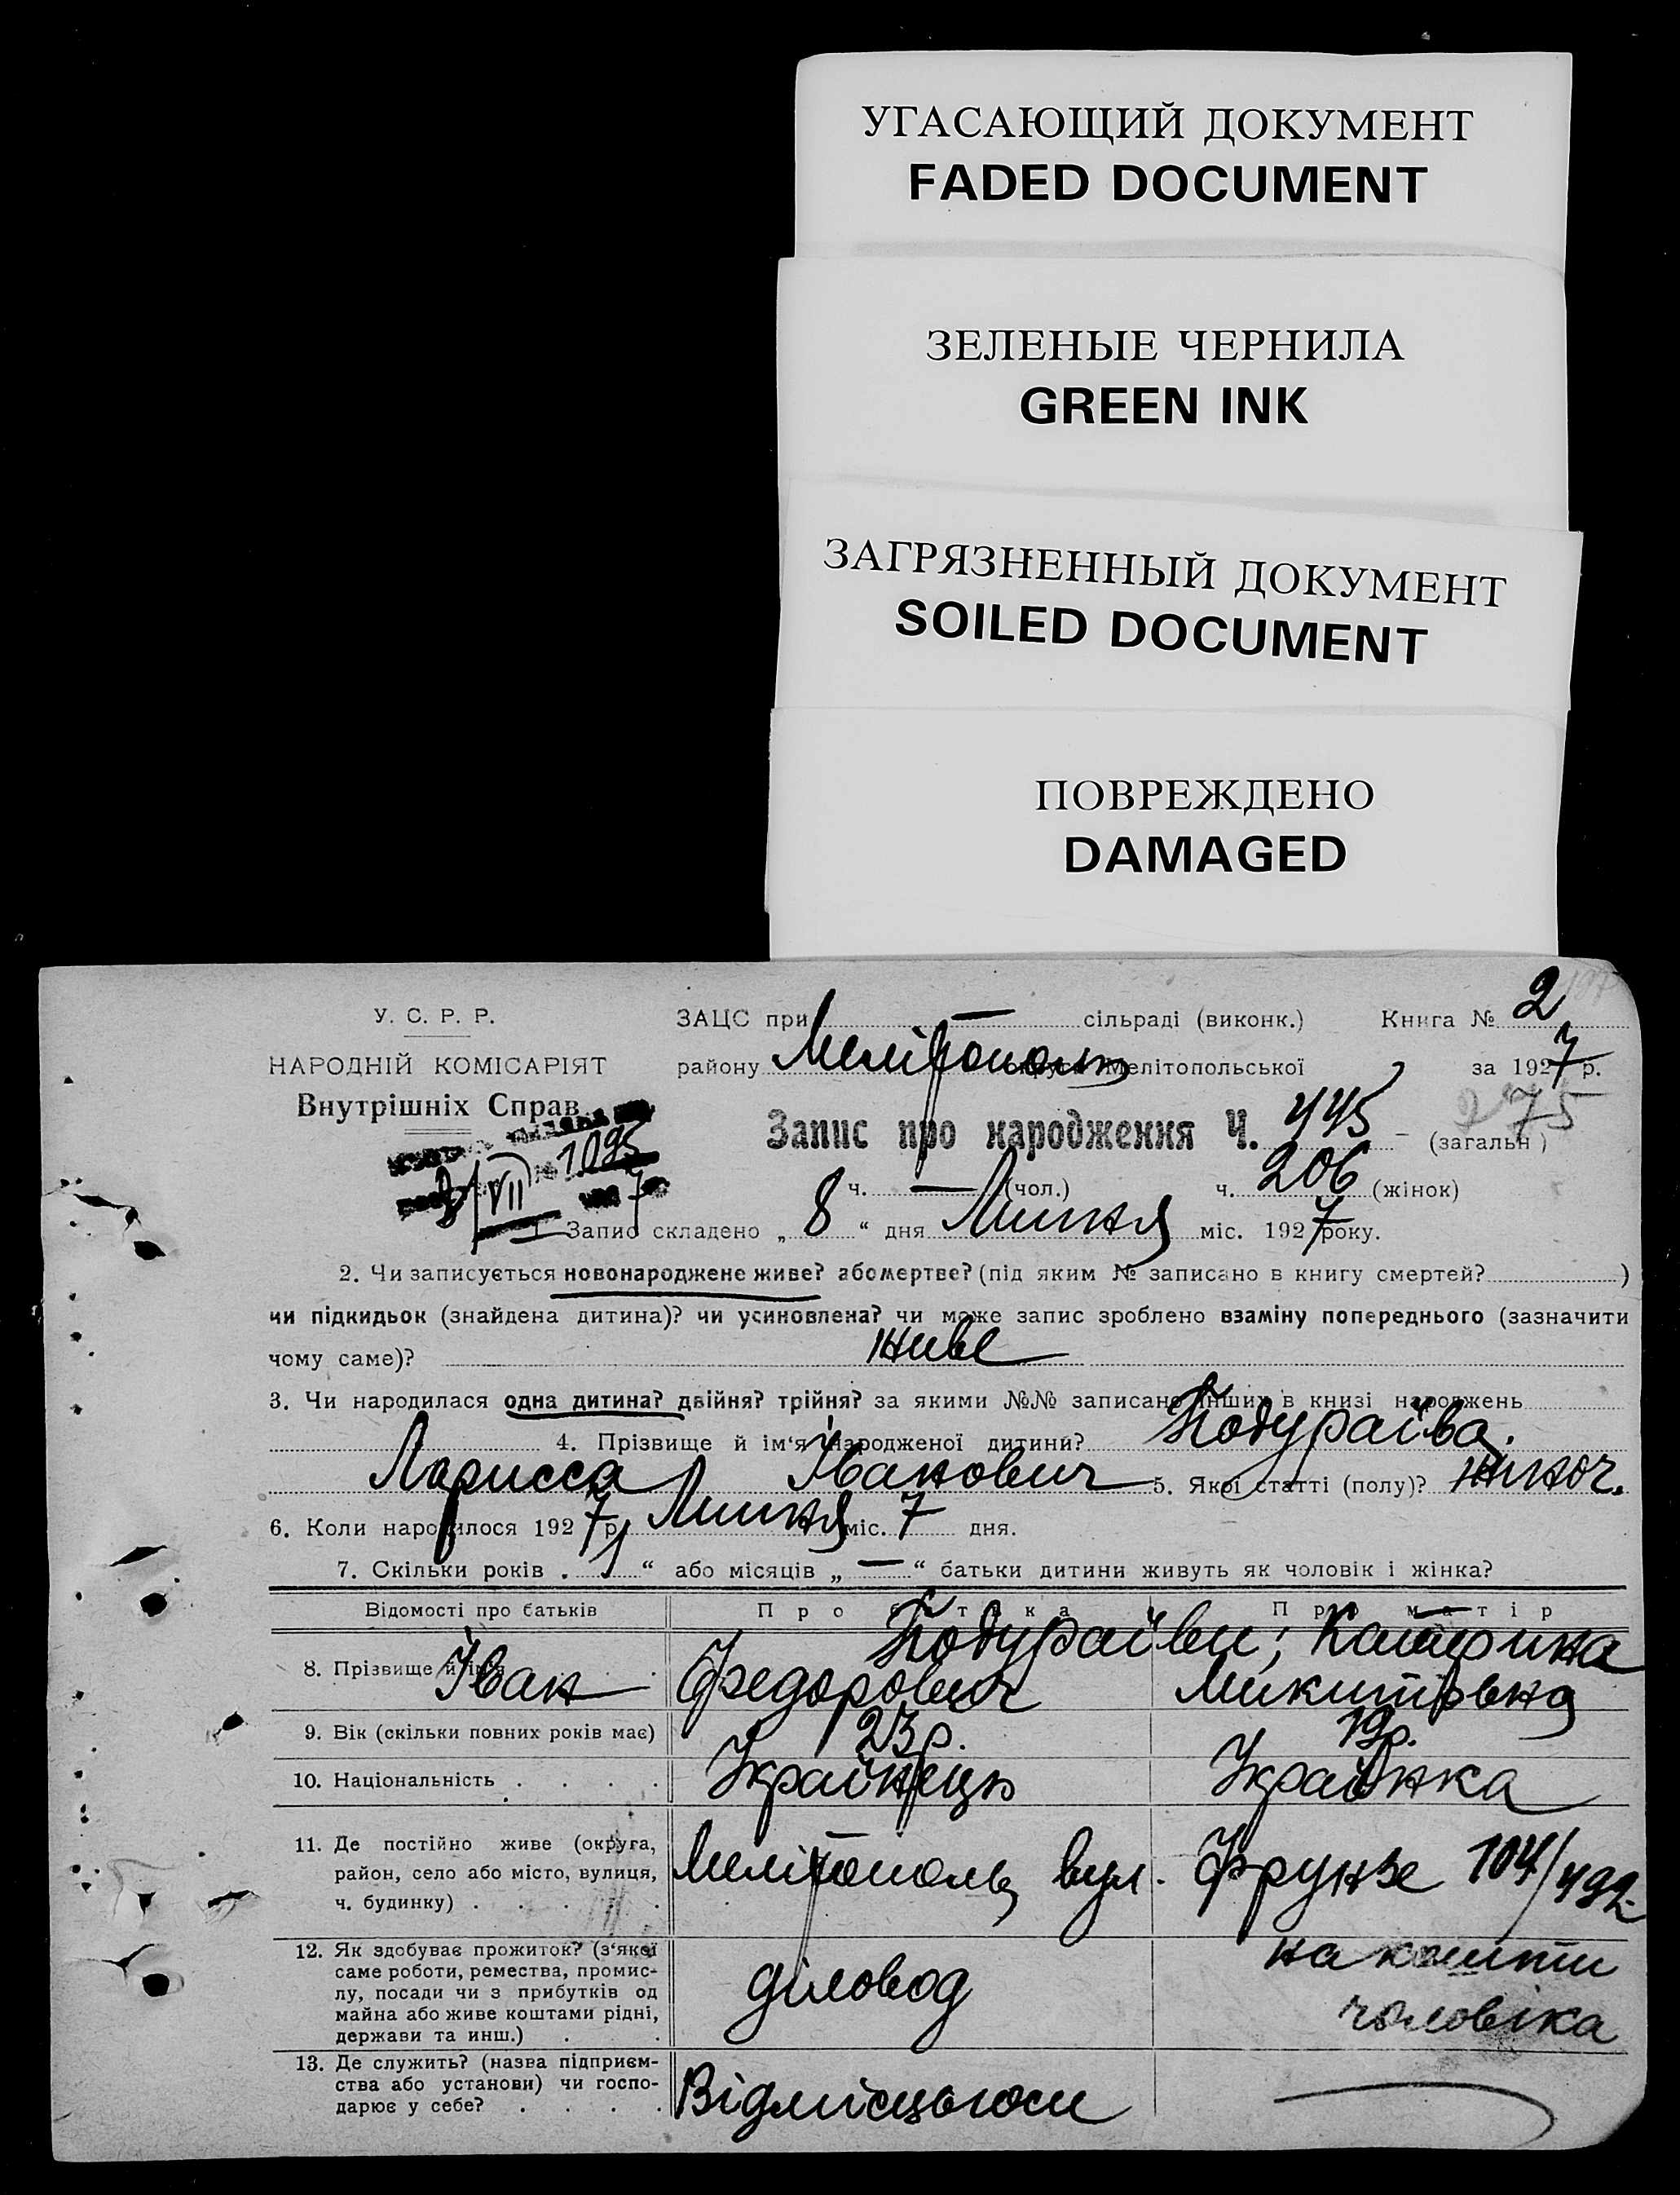 УГАСАЮЩИЙ ДОКУМЕНТ
FADED DOCUMENT
ЗЕЛЕНЫЕ ЧЕРНИЛА
GREEN INK
ЗАГРЯЗНЕННЫЙ ДОКУМЕНТ
SOILED DOCUMENT
ПОВРЕЖДЕНО
DAMAGED
У. С. Р. Р. ЗАЦС при — сільраді (виконк.) Книга № 2
НАРОДНІЙ КОМІСАРІЯТ району Мелітопольськ Мелітопольської за 1927 р.
Внутрішніх Справ
Запис про народження Ч. 445 — (загальн) 275
1095
8/VII 7
ч. — (чол.) ч. 206 (жінок)
1. Запис складено „ 8 “ дня Липня міс. 1927 року.
2. Чи записується новонароджене живе? або мертве? (під яким № записано в книгу смертей? )
чи підкидьок (знайдена дитина)? чи усиновлена? чи може запис зроблено взаміну попереднього (зазначити
чому саме)? живе
3. Чи народилася одна дитина? двійня? трійня? за якими №№ записано інших в книзі народжень
4. Прізвище й ім‘я народженої дитини? Подураїва
Ларисса Іванович 5. Якої статті (полу)? жіноч.
6. Коли народилося 1927 р. Липня міс. 7 дня.
7. Скільки років „ 1 “ або місяців „ — “ батьки дитини живуть як чоловік і жінка?
Відомості про батьків Про батька Про матір
Подураїви;
8. Прізвище й ім‘я Іван Федорович Катерина Микитовна
9. Вік (скільки повних років має) 23 р. 19 р.
10. Національність . . . . Українець Українка
11. Де постійно живе (округа,
район, село або місто, вулиця,
ч. будинку) . . . . . Мелітополь вул. Фрунзе 104/492
12. Як здобуває прожиток? (з‘якої
саме роботи, ремества, промис-
лу, посади чи з прибутків од
майна або живе коштами рідні,
держави та инш.) . . діловод на кошти чоловіка
13. Де служить? (назва підприєм-
ства або установи) чи госпо-
дарює у себе? . . . . Відмісцьгосп —